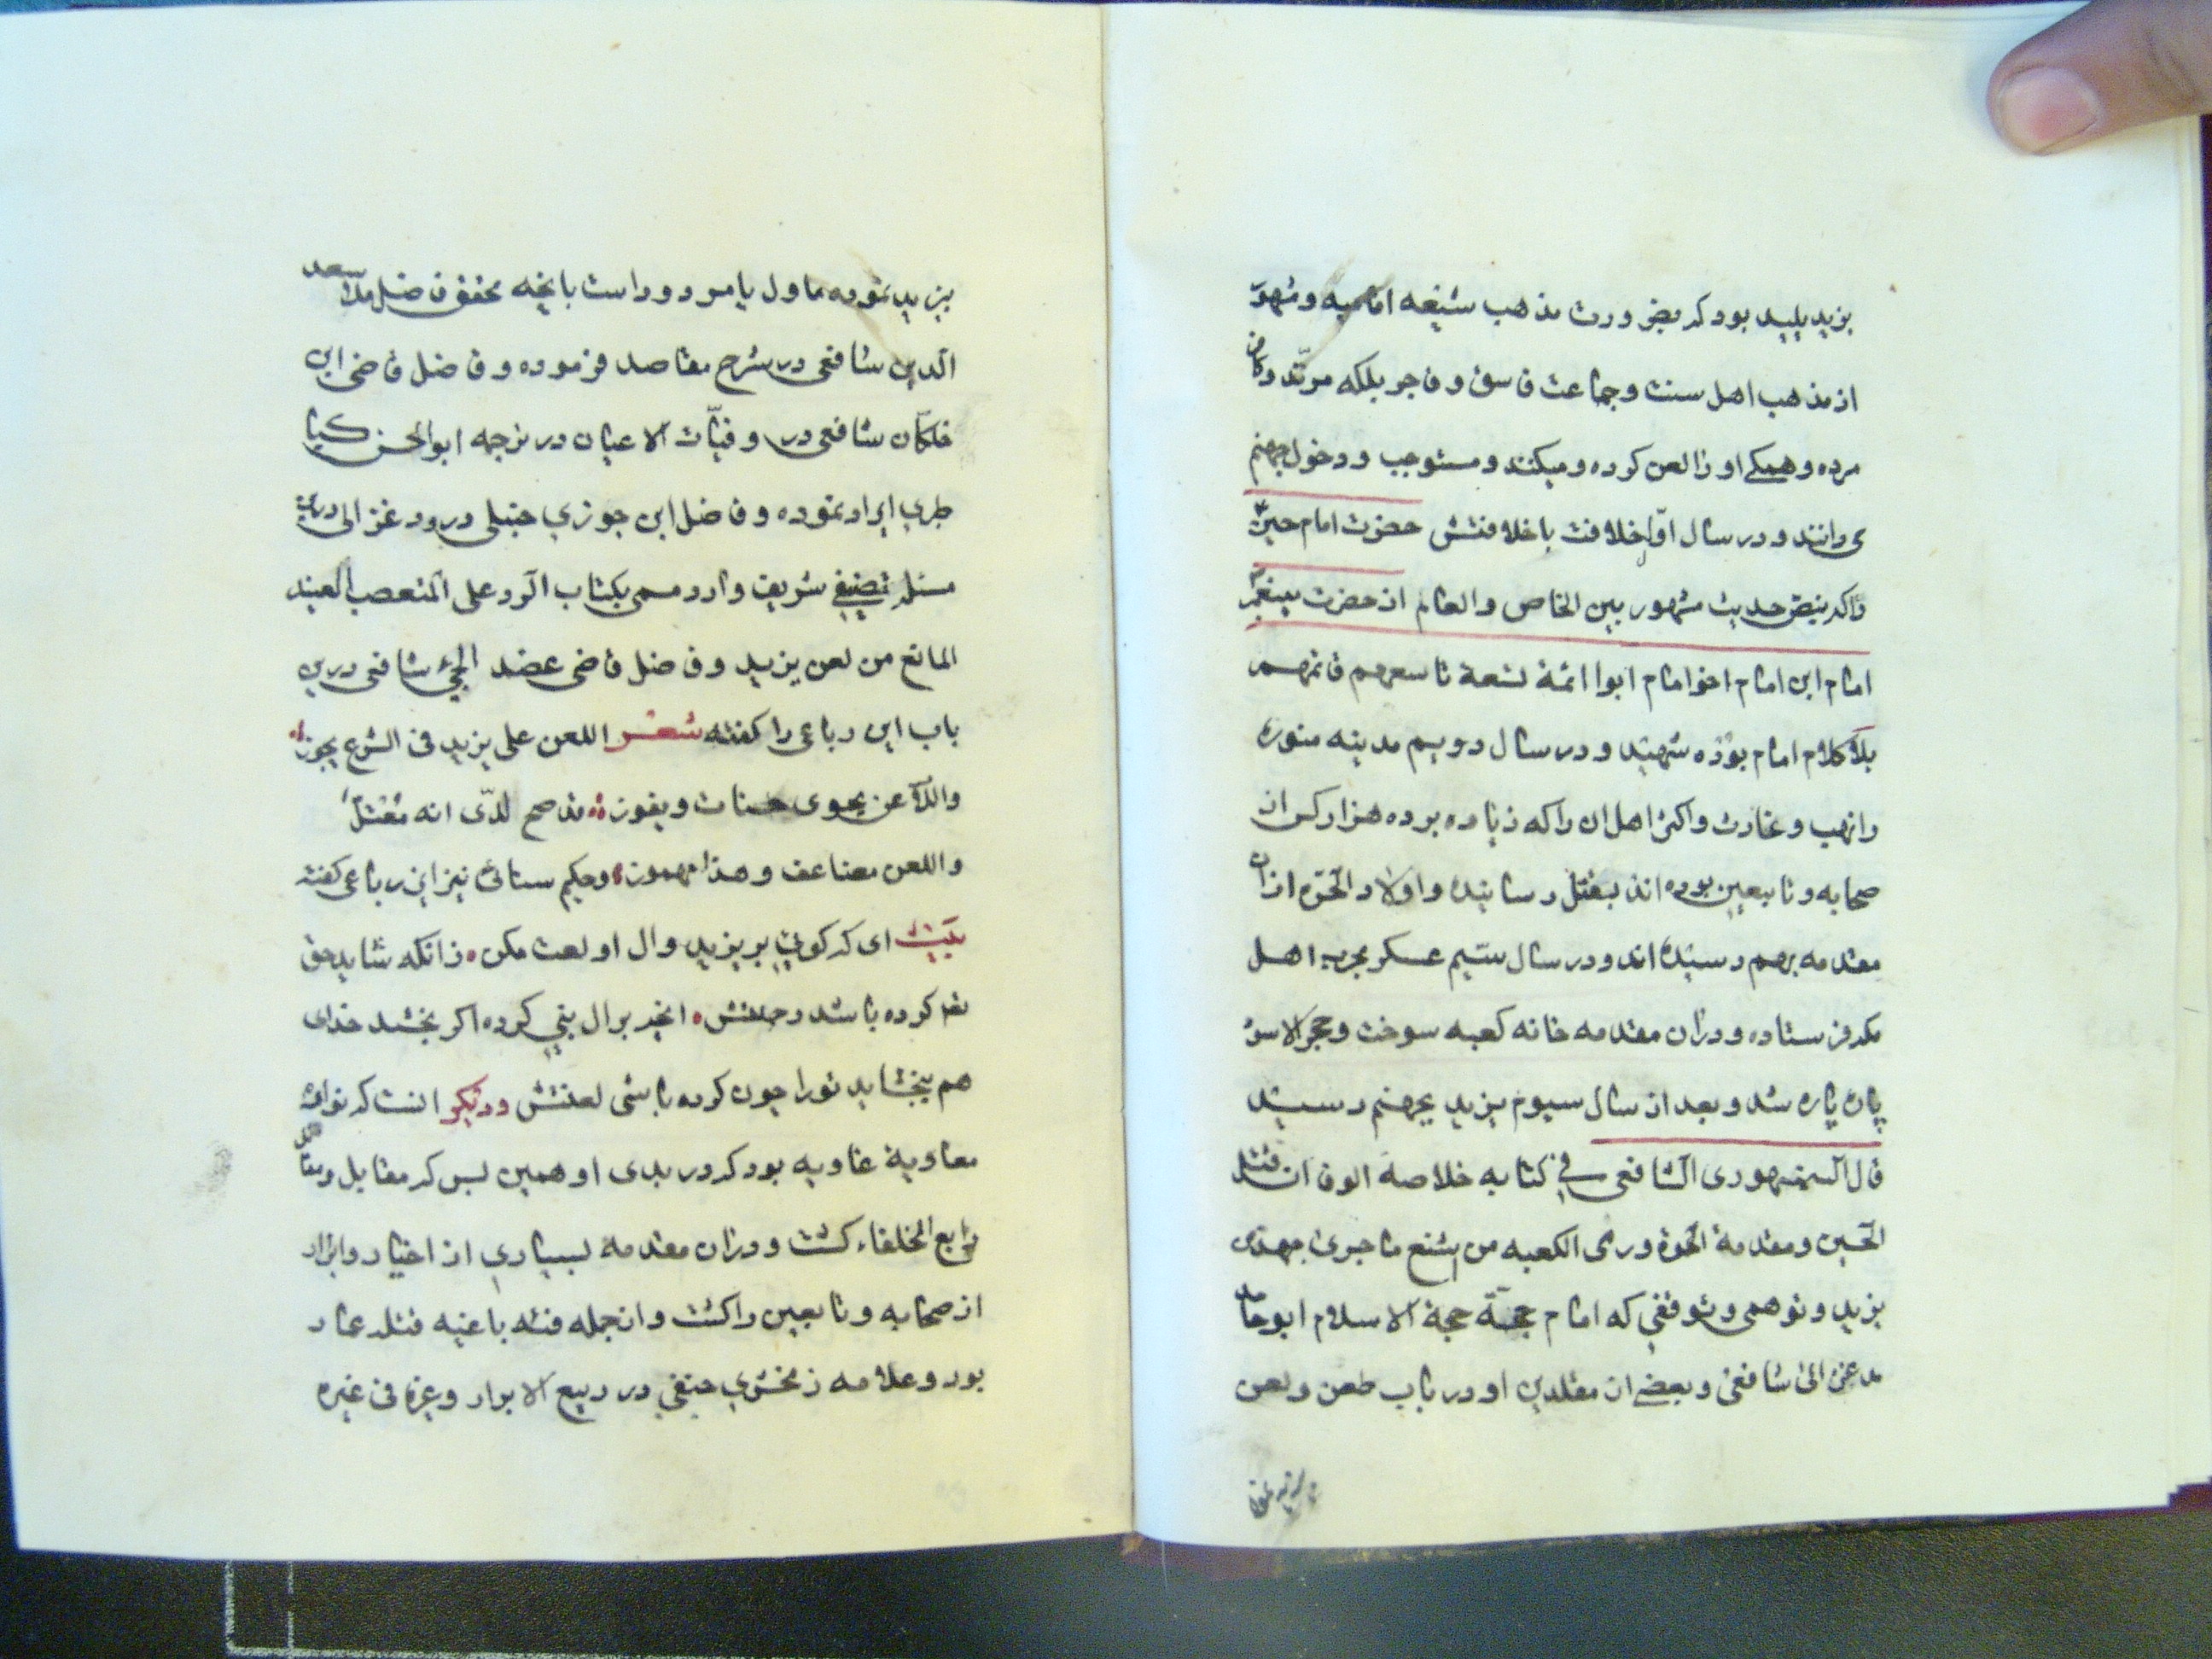 یزید پلید بود که بضرورت مذهب شیعه امامیه و شهرت
از مذهب اهل سنت و جماعت فاسق و فاجر بلکه مرتد و کافر
مرده و همگی او را لعن کرده و میکنند و مستوجب و دخول جهنم
می دانند و در سال اول خلافت باخلافتش حضرت امام حسین
را که بنص حدیث مشهور بین الخاص والعام از حضرت پیغمبر
امام ابن امام اخو امام ابوا ائمة تسعة تاسعهم قائمهم
بلا کلام امام بوده شهید و در سال دویم مدینه منوره
را نهب و غارت و اکثر اهل ان را که زیاده بر ده هزار کس از
صحابه و تابعین بوده اند بقتل رسانیده و اولاد الحرّه از ان
مقدمه بهم رسیده اند و در سال سیم عسکر بحرب اهل
مکه فرستاده و دران مقدمه خانه کعبه سوخت و حجر الاسود
پاره پاره شد و بعد از سال سیوم یزید بجهنم رسید
قال السمهودی الشافعی فی کتابه خلاصة الوفا ان قتل
الحسین و مقدمة الحرة و رمی الکعبه من اشنع ما جری بعهد
یزید و توهمی و توقفی که امام حجة الاسلام ابو حا
مد غزالی شافعی و بعضی از مقلدین او در باب طعن و لعن
بیزید نموده ماول یا مردود است بانچه محقق فاضل ملا سعد
الدین شافعی در شرح مقاصد فرموده و فاضل قاضی ابن
خلکان شافعی در وفیّات الاعیان در ترجمه ابوالحسن کیا
طبری ایراد نموده و فاضل ابن جوزی حنبلی در رد غزالی درین
مسئله تصنیفی شریف دارد مسمی بکتاب الرد علی المتعصب العنید
المانع من لعن یزید و فاضل قاضی عضد الجی شافعی درین
باب این رباعی را کفته شعر اللعن علی یزید فی الشرع یجوز
واللاعن یحوی حسنات و یفوز قد صح لدّی انه مُعْتَلّ
واللعن مضاعف و هذا مهموز و حکیم سنائی نیز این رباعی کفته
بَیْت ای که کوئی بر یزید و ال او لعنت مکن زانکه شاید حق
تعم کرده باشد رحمتش انچه بر ال نبی کرده اکر بخشد خدای
هم ببخشاید تو را چون کرده باشی لعنتش و دیکر انست که
معاویة غاویه بود که در بدی او همین بس که مقابل و مقاتل
رابع الخلفاء کشت و دران مقدمه بسیاری از اخیار و ابرار
از صحابه و تابعین را کشت و از جمله فئه باغیه قتله عمار
بود و علامه زمخشری حنفی در ربیع الابرار و غیره فی غیره